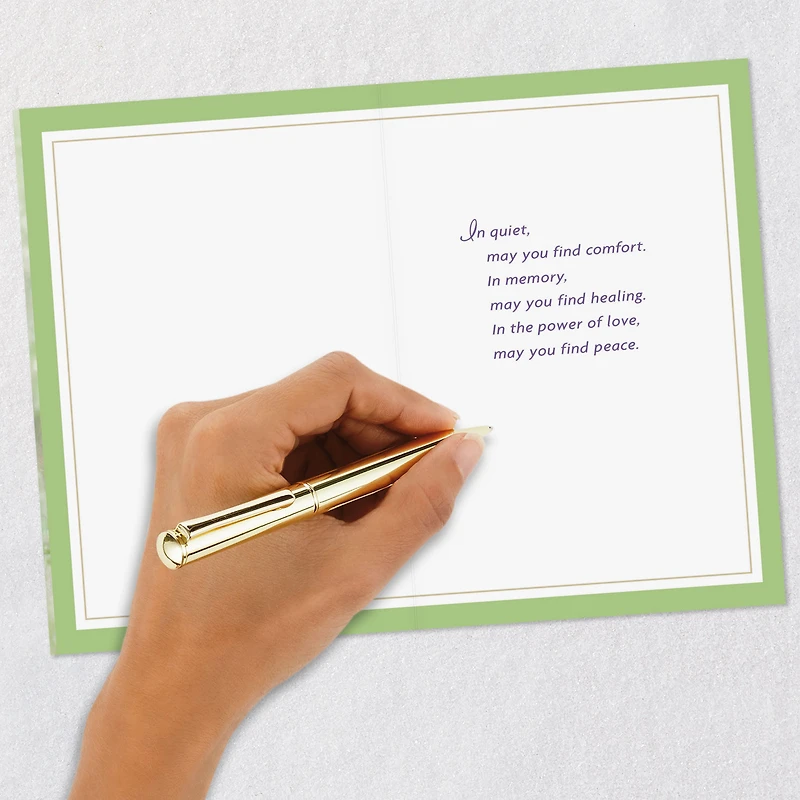 In quiet,
may you find comfort.
In memory,
may you find healing.
In the power of love,
may you find peace.